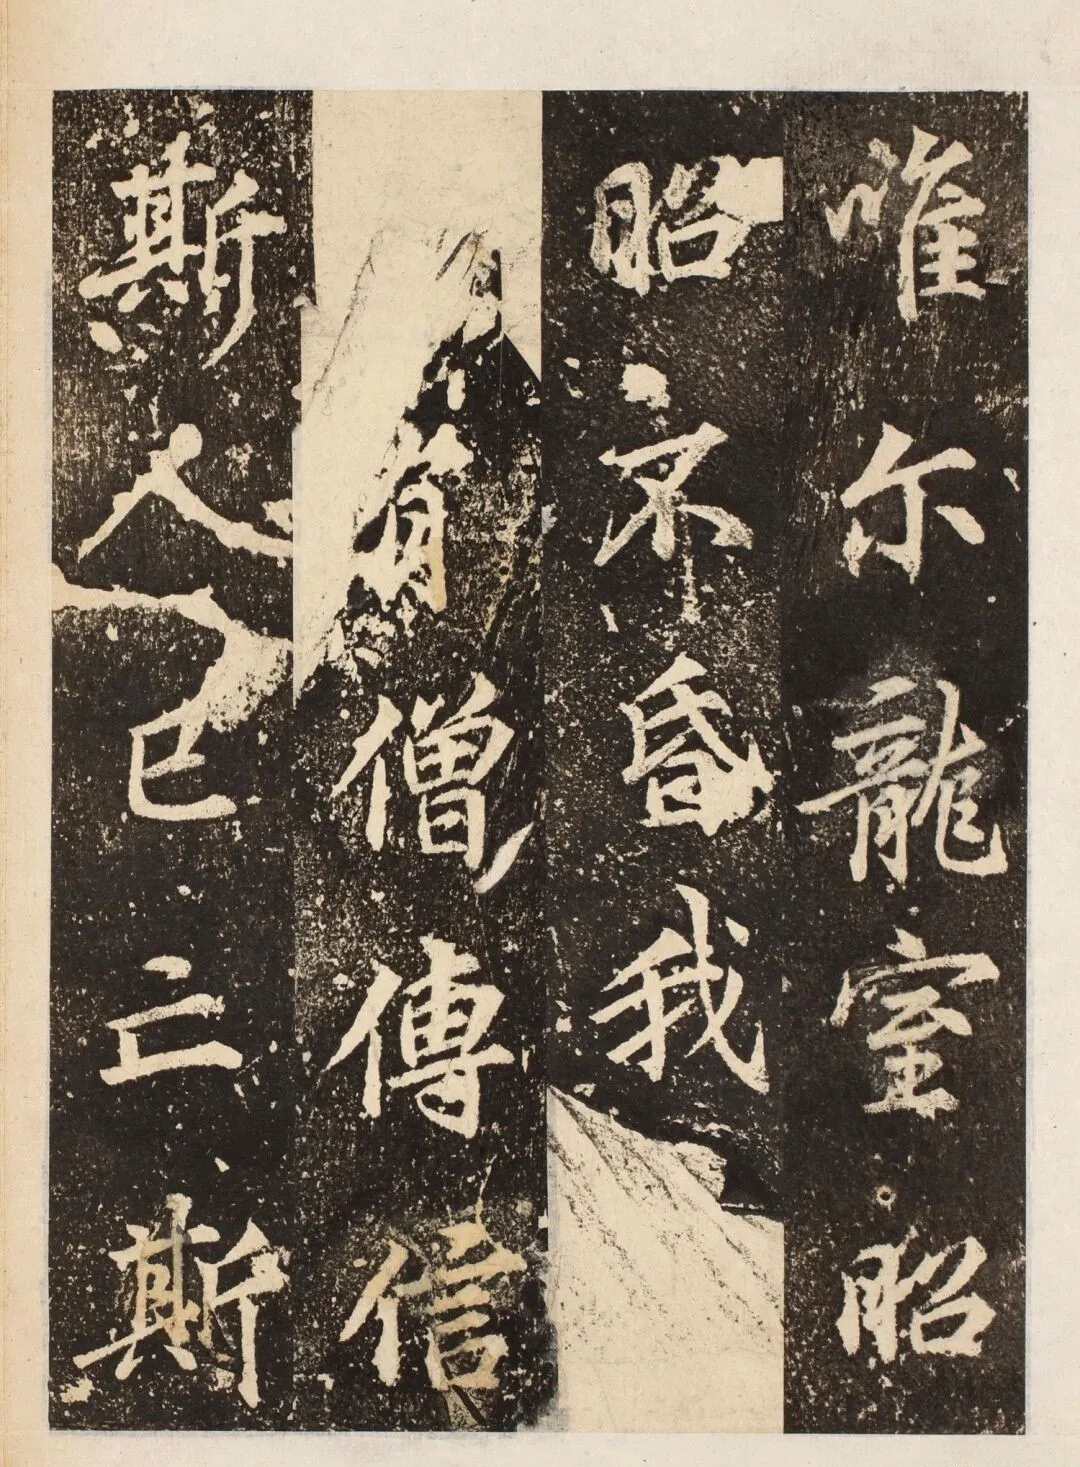 唯尔龍室昭
昭不昏我
有僧傳信
斯人已亡斯